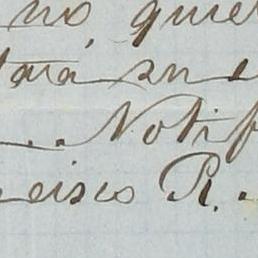 no, quie
tará en e
Notif
cisco R.